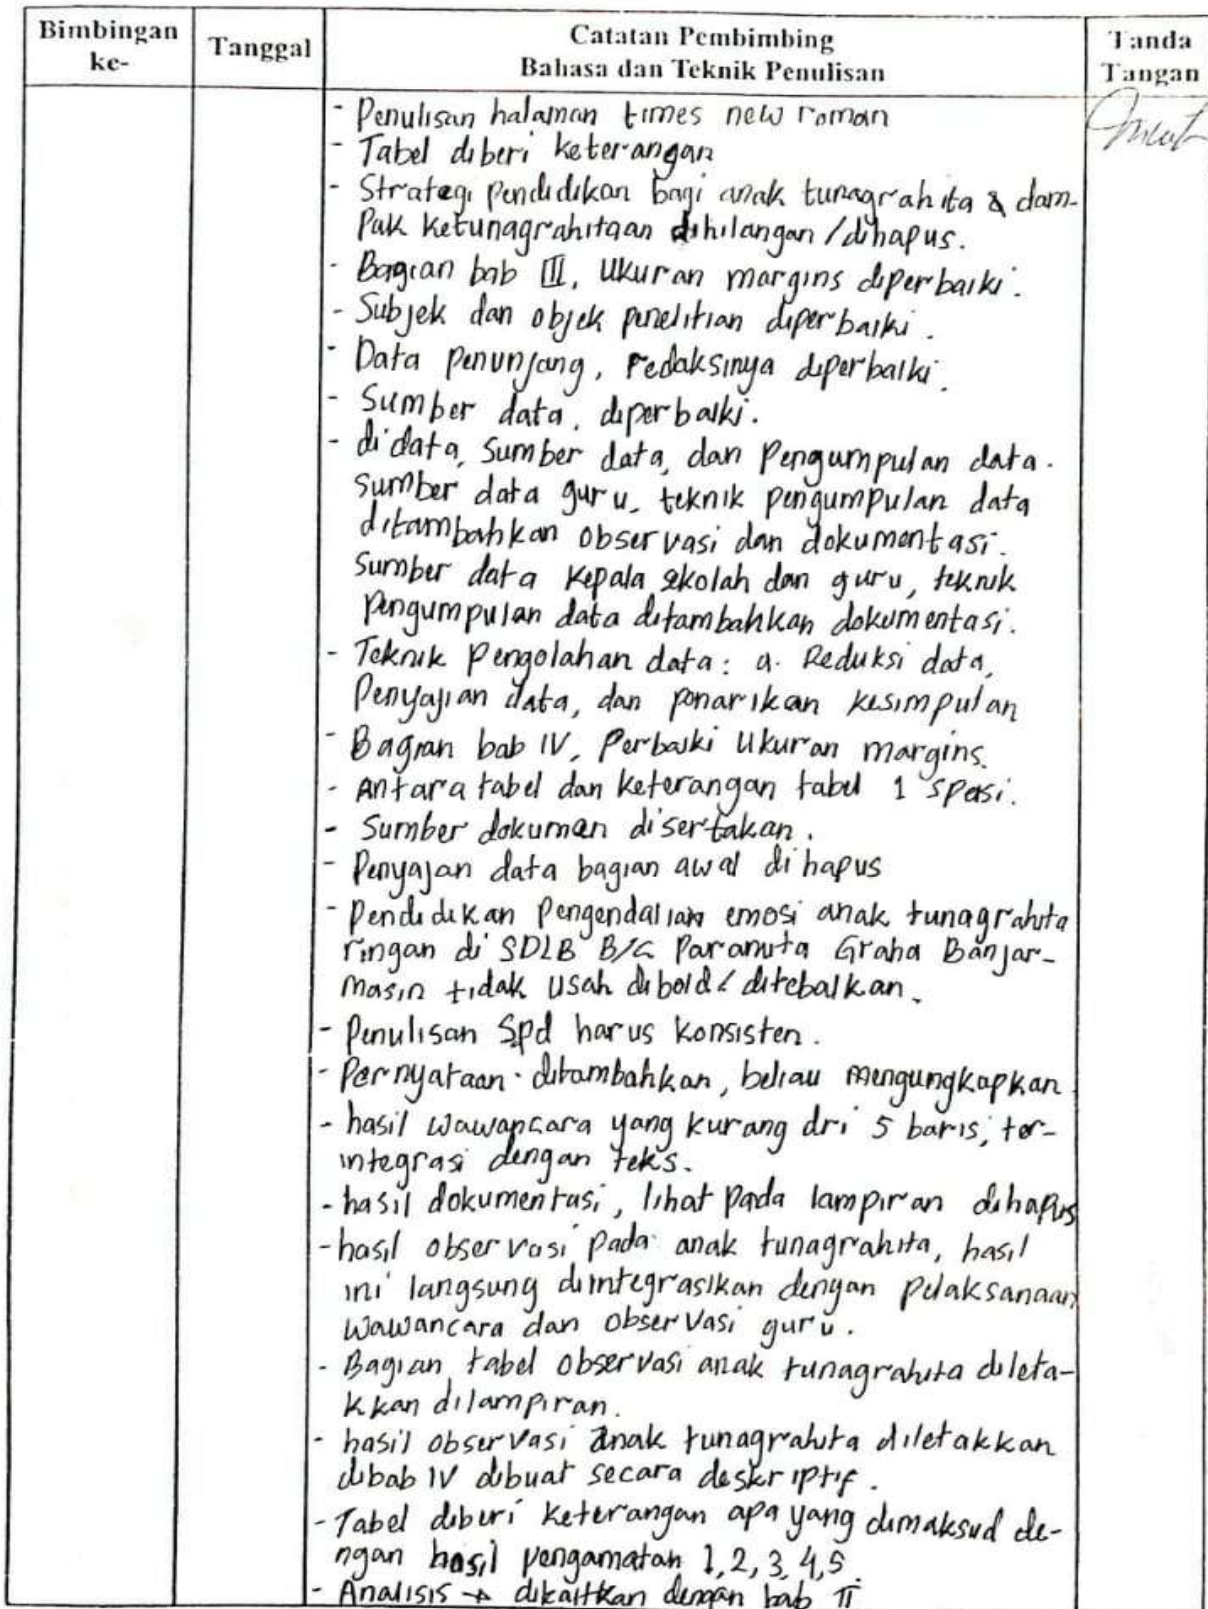 Bimbingan ke-
Tanggal
Catatan Pembimbing
Bahasa dan Teknik Penulisan
Tanda Tangan
- Penulisan halaman times new roman
- Tabel diberi keterangan
- Strategi pendidikan bagi anak tunagrahita & dam-
pak ketunagrahitaan dihilangan / dihapus.
- Bagian bab III, ukuran margins diperbaiki.
- Subjek dan objek penelitian diperbaiki.
- Data penunjang, redaksinya diperbaiki.
- Sumber data, diperbaiki.
- di data, sumber data, dan pengumpulan data.
Sumber data guru, teknik pengumpulan data
ditambahkan observasi dan dokumentasi.
Sumber data kepala sekolah dan guru, teknik
pengumpulan data ditambahkan dokumentasi.
- Teknik pengolahan data: a. Reduksi data,
Penyajian data, dan penarikan kesimpulan
- Bagian bab IV, Perbaiki ukuran margins.
- Antara tabel dan keterangan tabel 1 spasi.
- Sumber dokumen disertakan.
- Penyajan data bagian awal di hapus
- Pendidikan Pengendalian emosi anak tunagrahita
ringan di SDLB B/C Paramita Graha Banjar-
masin tidak usah dibold / ditebalkan.
- Penulisan Spd harus konsisten.
- Pernyataan ditambahkan, beliau mengungkapkan
- hasil wawancara yang kurang dri 5 baris, ter-
integrasi dengan teks.
- hasil dokumentasi, lihat pada lampiran dihapus
- hasil observasi pada anak tunagrahita, hasil
ini langsung diintegrasikan dengan pelaksanaan
wawancara dan observasi guru.
- Bagian tabel observasi anak tunagrahita dileta-
kkan dilampiran.
- hasil observasi anak tunagrahita diletakkan
dibab IV dibuat secara deskriptif.
- Tabel diberi keterangan apa yang dimaksud de-
ngan hasil pengamatan 1,2,3,4,5.
- Analisis → dikaitkan dengan bab II